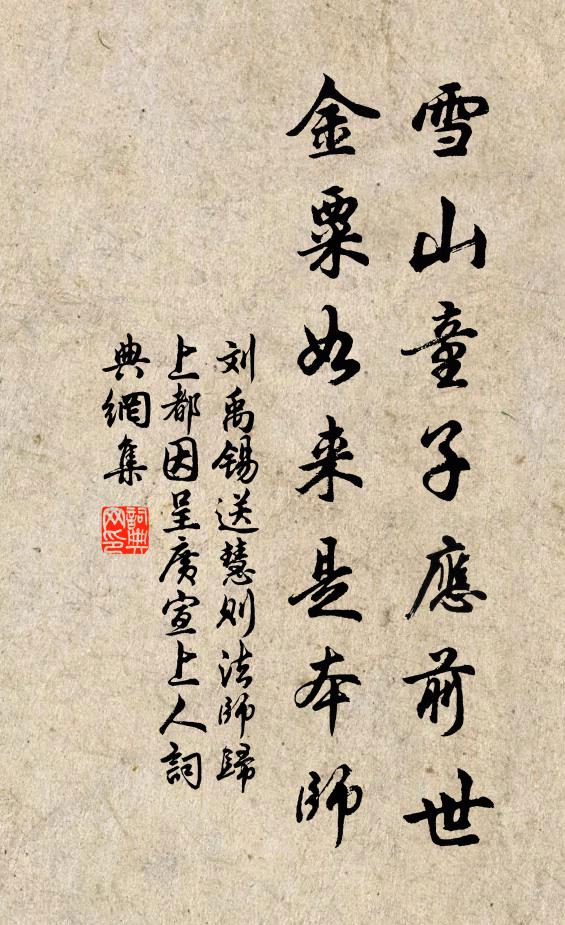 雪山童子應前世
金粟如来是本師
刘禹锡送慧则法師歸
上都因呈廣宣上人詞
典網集
詞典網印